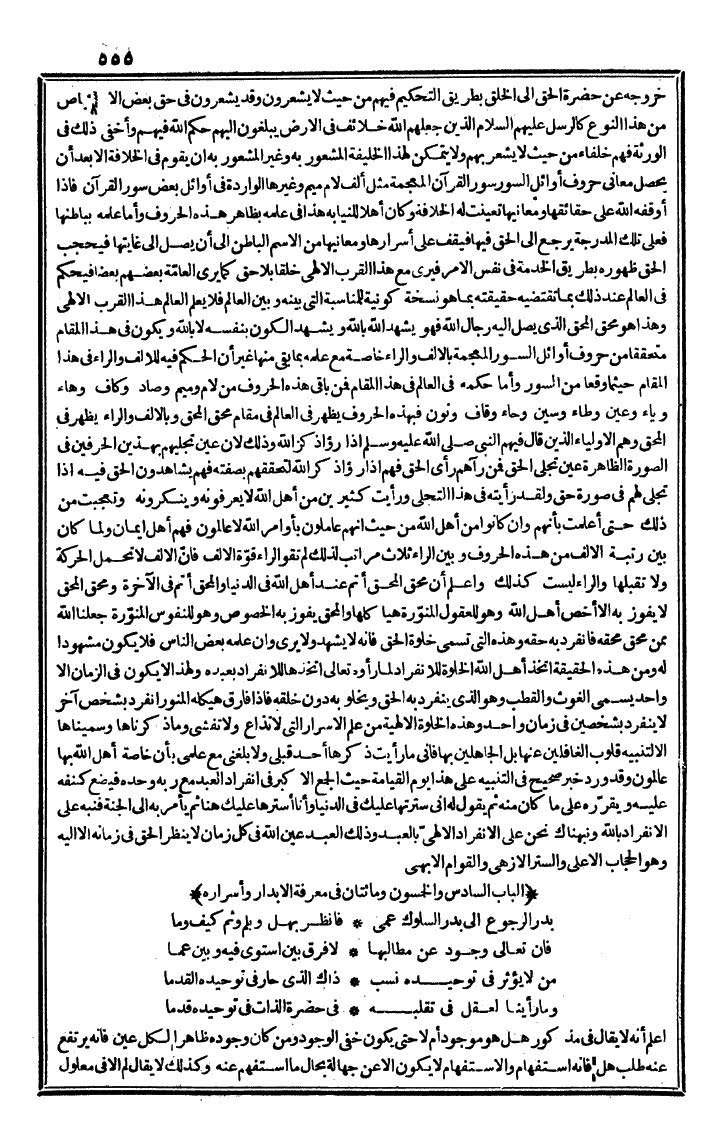 ٥٥٥
خروجه عن حضرة الحق الى الخلق بطريق التحكيم فيهم من حيث لا يشعرون وقد يشعرون فى حق بعض الا
من هذا النوع كالرسل عليهم السلام الذين جعلهم الله خلائف فى الارض يبلغون اليهم حكم الله فيهم وأخفى ذلك فى
الورثة فهم خلفاء من حيث لا يشعر بهم ولا يتمكن لهذا الخليفة المشعور به وغير المشعور به ان يقوم فى الخلافة الا بعد أن
يحصل معانى حروف أوائل السور سور القرآن المعجمة مثل ألف لام ميم وغيرها الواردة فى أوائل بعض سور القرآن فاذا
أوقفه الله على حقائقها ومعانيها تعينت له الخلافة وكان أهلا للنيابة هذا فى علمه بظاهر هذه الحروف وأما علمه بباطنها
فعلى تلك المدرجة يرجع الى الحق فيها فيقف على أسرارها ومعانيها من الاسم الباطن الى أن يصل الى غايتها فيحجب
الحق ظهوره بطريق الخدمة فى نفس الامر فيرى مع هذا القرب الالهى خلقا بلا حق كما يرى العامّة بعضهم بعضا فيحكم
فى العالم عند ذلك بما تقتضيه حقيقته بما هو نسخة كونية للمناسبة التى بينه وبين العالم فلا يعلم العالم هذا القرب الالهى
وهذا هو محق المحق الذى يصل اليه رجال الله فهو يشهد الله بالله ويشهد الكون بنفسه لا بالله ويكون فى هذا المقام
متحققا من حروف أوائل السور المعجمة بالالف والراء خاصة مع علمه بما بقى منها غير أن الحكم فيه للالف والراء فى هذا
المقام حيثما وقعا من السور وأما حكمه فى العالم فى هذا المقام فمن باقى هذه الحروف من لام وميم وصاد وكاف وهاء
وياء وعين وطاء وسين وحاء وقاف ونون فبهذه الحروف يظهر فى العالم فى مقام محق المحق وبالالف والراء يظهر فى
المحق وهم الاولياء الذين قال فيهم النبى صلى الله عليه وسلم اذا رؤا ذكر الله وذلك لان عين تجليهم بهذين الحرفين فى
الصورة الظاهرة عين تجلى الحق فمن رآهم رأى الحق فهم اذا رؤا ذكر الله لتحققهم بصفته فهم يشاهدون الحق فيه اذا
تجلى لهم فى صورة حق ولقد رأيته فى هذا التجلى ورأيت كثيرين من أهل الله لا يعرفونه وينكرونه وتعجبت من
ذلك حتى أعلمت بأنهم وان كانوا من أهل الله من حيث انهم عاملون بأوامر الله لا عالمون فهم أهل ايمان ولما كان
بين رتبة الالف من هذه الحروف وبين الراء ثلاث مراتب لذلك لم تقو الراء قوّة الالف فانّ الالف لا تحمل الحركة
ولا تقبلها والراء ليست كذلك واعلم أن محق المحق أتم عند أهل الله فى الدنيا والمحق أتم فى الآخرة ومحق المحق
لا يفوز به الا أخص أهل الله وهو للعقول المنوّرة هيا كلها والمحق يفوز به الخصوص وهو للنفوس المنوّرة جعلنا الله
ممن محق محقه فانفرد به حقه وهذه التى تسمى خلوة الحق فانه لا يشهد ولا يرى وان علمه بعض الناس فلا يكون مشهودا
له ومن هذه الحقيقة اتخذ أهل الله الخلوة للانفراد لما رأوه تعالى اتخذها للانفراد بعبده ولهذا لا يكون فى الزمان الا
واحد يسمى الغوث والقطب وهو الذى ينفرد به الحق ويخلو به دون خلقه فاذا فارق هيكله المنور انفرد بشخص آخر
لا ينفرد بشخصين فى زمان واحد وهذه الخلوة الالهية من علم الاسرار التى لا تذاع ولا تفشى وما ذكرناها وسميناها
الا لتنبيه قلوب الغافلين عنها بل الجاهلين بها فانى ما رأيت ذكرها أحد قبلى ولا بلغنى مع علمى بأن خاصة أهل الله بها
عالمون وقد ورد خبر صحيح فى التنبيه على هذا يوم القيامة حيث الجمع الاكبر فى انفراد العبد مع ربه وحده فيضع كنفه
عليه ويقرّره على ما كان منه ثم يقول له انى سترتها عليك فى الدنيا وأنا أسترها عليك هنا ثم يأمر به الى الجنة فنبه على
الانفراد بالله ونبهناك نحن على الانفراد الالهىّ بالعبد وذلك العبد عين الله فى كل زمان لا ينظر الحق فى زمانه الا اليه
وهو الحجاب الاعلى والستر الازهى والقوام الابهى
﴿الباب السادس والخمسون ومائتان فى معرفة الابدار وأسراره﴾
بدر الرجوع الى بدر السلوك عمى * فانظر بهل وبلم وثم كيف وما
فان تعالى وجود عن مطالبها * لا فرق بين استوى فيه وبين عما
من لا يؤثر فى توحيده نسب * ذاك الذى حار فى توحيده القدما
وما رأينا لعقل فى تقلبه * فى حضرة الذات فى توحيده قدما
اعلم أنه لا يقال فى مذكور هل هو موجود أم لا حتى يكون خفى الوجود ومن كان وجوده ظاهرا لكل عين فانه يرتفع
عنه طلب هل فانه استفهام والاستفهام لا يكون الا عن جهالة بحال ما استفهم عنه وكذلك لا يقال لم الا فى معلول